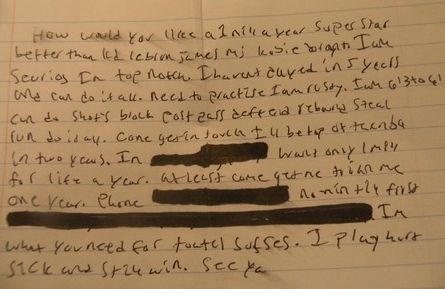 How would you like a 1 mill a year Super Star
better than kd lebron james mj kobie Im
Serios Im top Notch. I havent played in 5 years
and can do it all. Need to practise I am rusty. I am 6'3 to 6'
can do shots block pass deffend rebound Steal
run do it all. Come get in touch I'll be top of
in two years. Im want only 1 mil
for life a year. at least come get me me
one year. Phone first
Im
what you need for toatel Sufses. I play hurt
SICK and still win. See ya